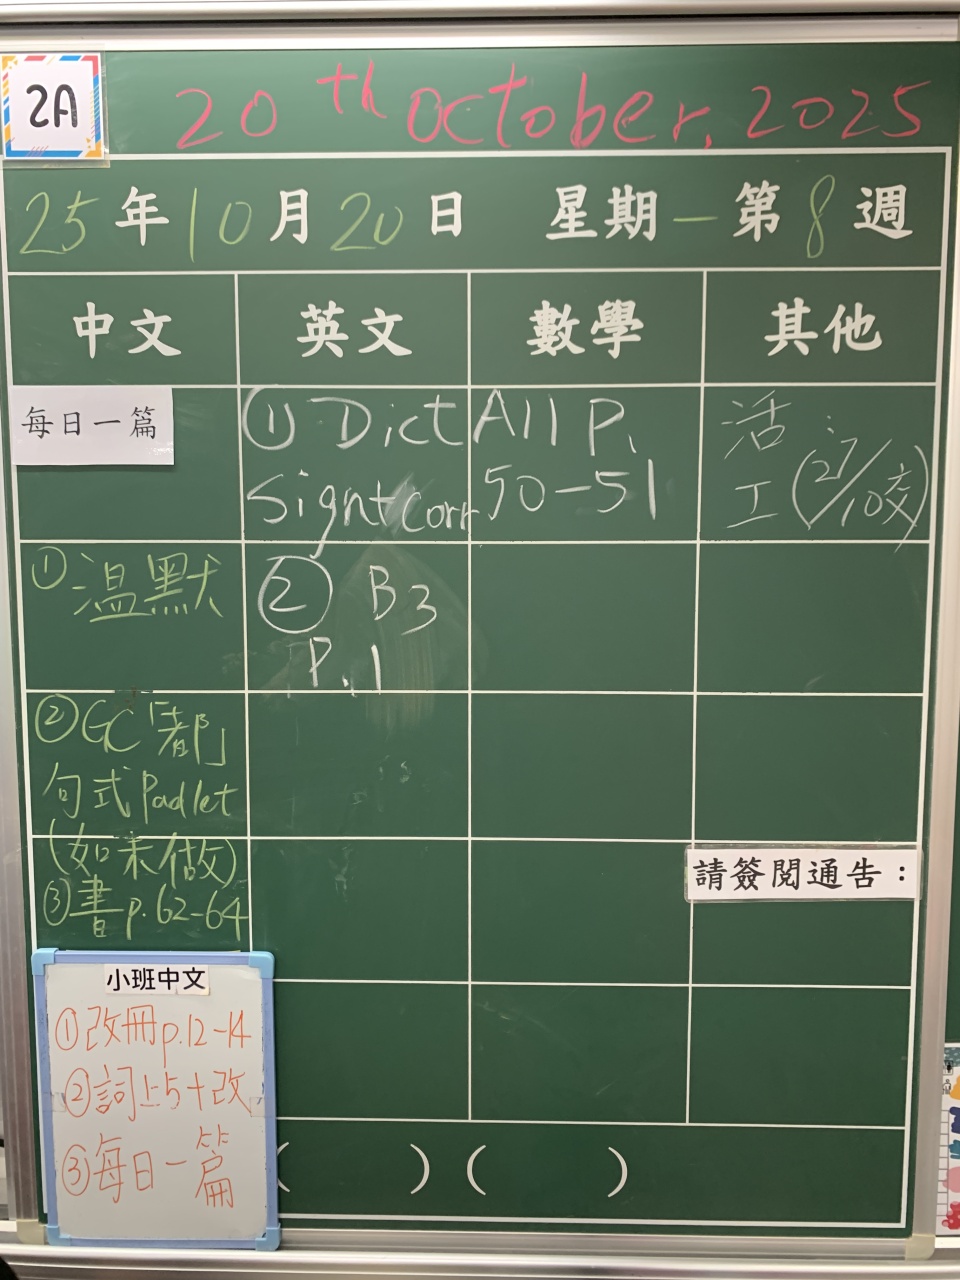 2A
20th October, 2025
25年10月20日 星期一第8週
中文 英文 數學 其他
每日一篇
① 溫默
② GC「都」
句式 Padlet
(如未做)
③ 書 p.62-64
① Dict
Sign+corr
② B3
P.1
A11 P.
50-51
活:
工(27/10交)
請簽閱通告：
小班中文
① 改冊 p.12-14
② 詞上5+改
③ 每日一篇
( ) ( )